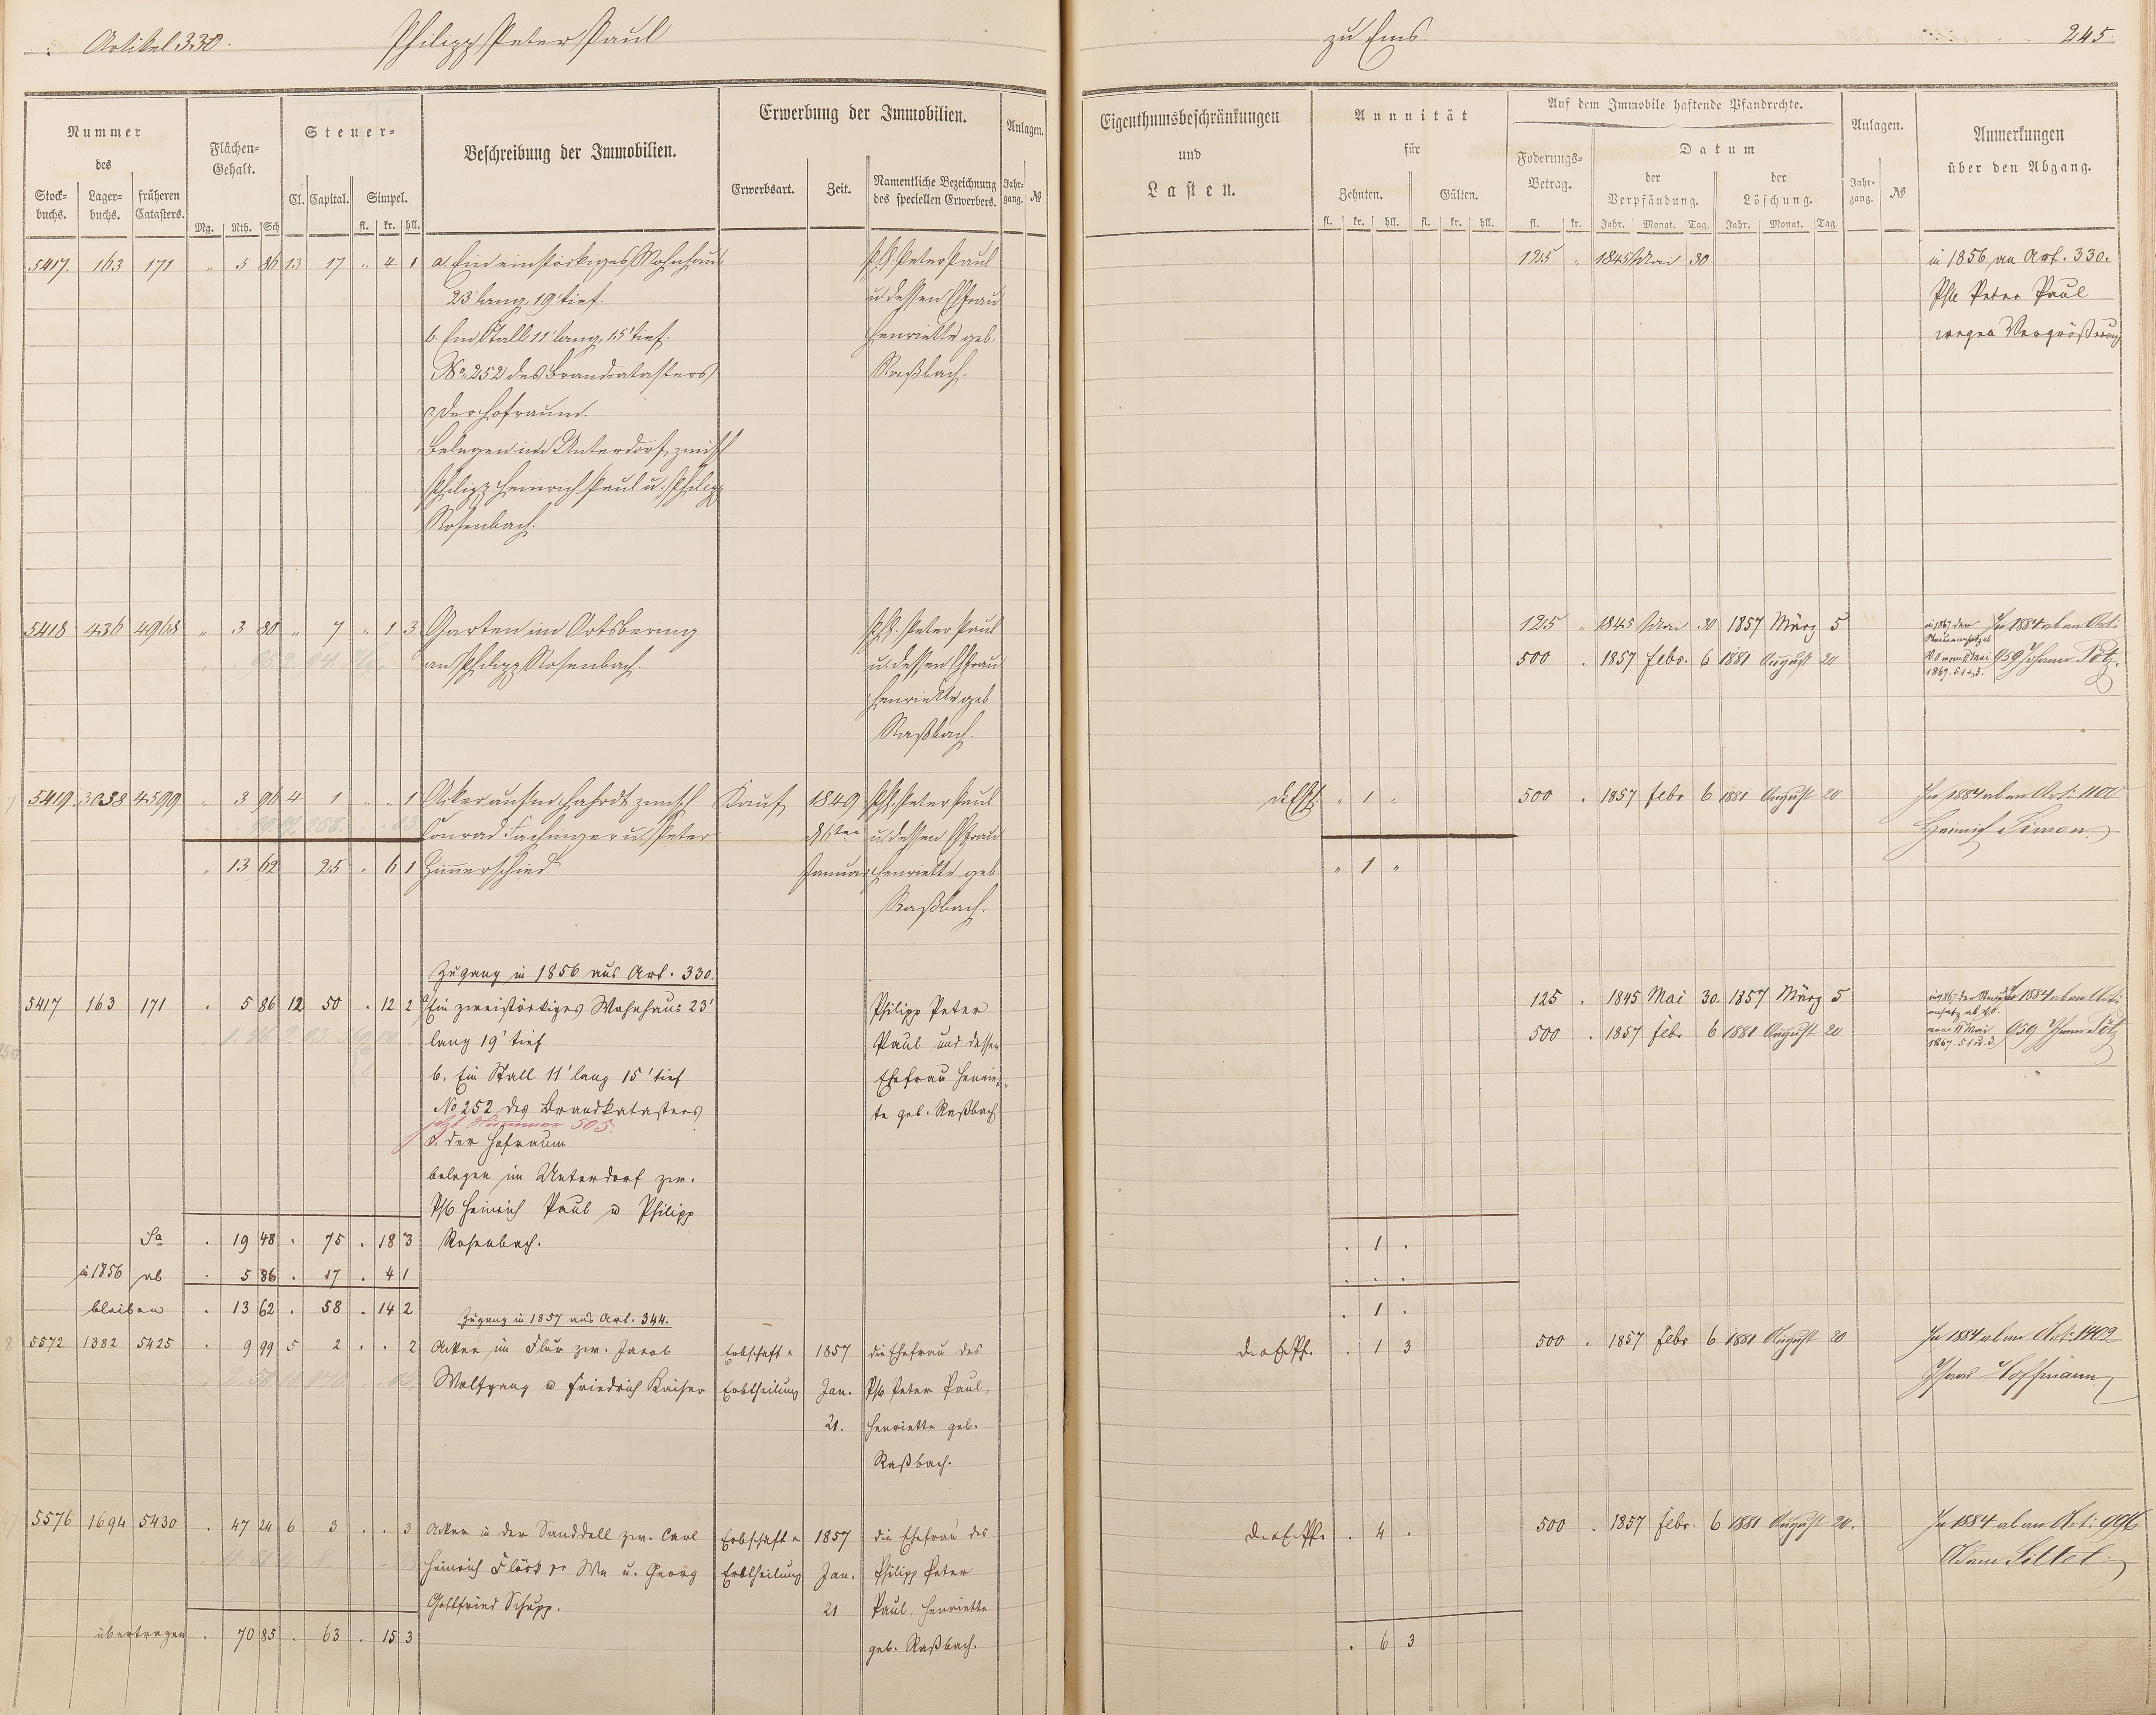 Artikel 330. Philipp Peter Paul zu Ems. 245
Nummer des
Stockbuchs. Lagerbuchs. früheren Catasters.
Flächen-Gehalt. Mg. Rth. Sch
Steuer-
Cl. Capital. Simpel. fl. kr. hll.
Beschreibung der Immobilien.
Erwerbung der Immobilien.
Erwerbsart. Zeit. Namentliche Bezeichnung des speciellen Erwerbers.
Anlagen. Jahrgang. №
Eigenthumsbeschränkungen und Lasten.
Annuität für
Zehnten. fl. kr. hll. Gülten. fl. kr. hll.
Auf dem Immobile haftende Pfandrechte.
Foderungs-Betrag. fl. kr.
Datum
der Verpfändung. Jahr. Monat. Tag. der Löschung. Jahr. Monat. Tag.
Anlagen. Jahrgang. №
Anmerkungen über den Abgang.
5417. 163 171 " 5 86 13 17 " 4 1 a. Ein einstöckiges Wohnhaus Ph. Peter Paul 125 " 1845 Mai 30 in 1856 an Art. 330.
23' lang, 19' tief. u. dessen Ehfrau Phil Peter Paul
b. Ein Stall 11' lang, 15' tief. Henriette geb. wegen Vergrößerung
No. 252 des Brandcatasters Raßbach.
c. Der Hofraum.
Belegen im Unterdorf, zwisch
Philipp Heinrich Paul u. Philipp
Rosenbach.
5418 436 4968 " 3 80 " 7 " 1 3 Garten im Ortsbering Ph. Peter Paul 125 " 1845 Mai 30 1857 März 5 In 1884 ab an Art:
an Philipp Rosenbach. u. dessen Ehfrau 500 . 1857 Febr. 6 1881 August 20 959 Johann Pötz.
Henriette geb
Raßbach.
5419. 3038 4599 " 3 96 4 1 " " 1 Acker aufm Hahrdt zwisch Kauf 1849 Ph. Peter Paul " 1 " 500 . 1857 Febr 6 1881 August 20 In 1884 ab an Art: 1100
Conrad Fachinger u. Peter u. dessen Ehfrau Heinrich Simon
. 13 62 25 . 6 1 Himmerschied Januar Henriette geb. " 1 "
Raßbach.
Zugang in 1856 aus Art. 330.
5417 163 171 . 5 86 12 50 . 12 2 a) Ein zweistöckiges Wohnhaus 23' Philipp Peter 125 . 1845 Mai 30. 1857 März 5 In 1884 ab an Art:
lang 19' tief Paul und dessen 500 . 1857 Febr 6 1881 August 20. 959 Johann Pötz
b. Ein Stall 11' lang 15' tief Ehefrau Henriet-
No 252 des Brandkatasters te geb. Raßbach
jetzt Nummer 505.
c. der Hofraum
belegen im Unterdorf zw.
Phil Heinrich Paul u Philipp
Sa . 19 48 . 75 . 18 3 Rosenbach. . 1 .
in 1856 ab . 5 86 . 17 . 4 1 . . .
bleiben . 13 62 . 58 . 14 2 . 1 .
Zugang in 1857 aus Art. 344.
5572 1382 5425 . 9 99 5 2 . . 2 Acker im Flur zw. Jacob Erbschaft u 1857 die Ehefrau des . 1 3 500 . 1857 Febr 6 1881 August 20 In 1884 ab an Art: 1402
Wolfgang u Friedrich Kaiser Erbtheilung Jan. Phil Peter Paul, Hoffmann
21. Henriette geb.
Raßbach.
5576 1694 5430 . 47 24 6 3 . . 3 Acker in der Sanddell zw. Carl Erbschaft u 1857 die Ehefrau des . 4 . 500 . 1857 Febr. 6 1881 August 20. In 1884 ab an Art: 996
Heinrich Flöck Wu u. Georg Erbtheilung Jan. Philipp Peter Adam Sittel.
Gottfried Schupp. 21 Paul, Henriette
übertragen . 70 85 . 63 . 15 3 geb. Raßbach. . 6 3